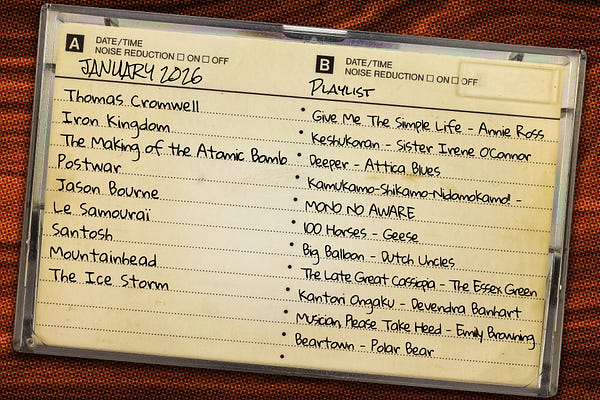 A
DATE/TIME
NOISE REDUCTION ☐ ON ☐ OFF
JANUARY 2026
Thomas Cromwell
Iron Kingdom
The Making of the Atomic Bomb
Postwar
Jason Bourne
Le Samouraï
Santosh
Mountainhead
The Ice Storm
B
DATE/TIME
NOISE REDUCTION ☐ ON ☐ OFF
PLAYLIST
• Give Me The Simple Life - Annie Ross
• Keshukoran - Sister Irene O'Connor
• Deeper - Attica Blues
• Kamukamo-Shikamo-Nidomokamo! -
• MONO NO AWARE
• 100 Horses - Geese
• Big Balloon - Dutch Uncles
• The Late Great Cassiopia - The Essex Green
• Kantori Ongaku - Devendra Banhart
• Musician, Please Take Heed - Emily Browning
• Beartown - Polar Bear
•